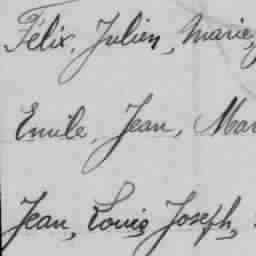 Félix, Julien, Marie,
Emile, Jean, Mar
Jean, Louis Joseph,